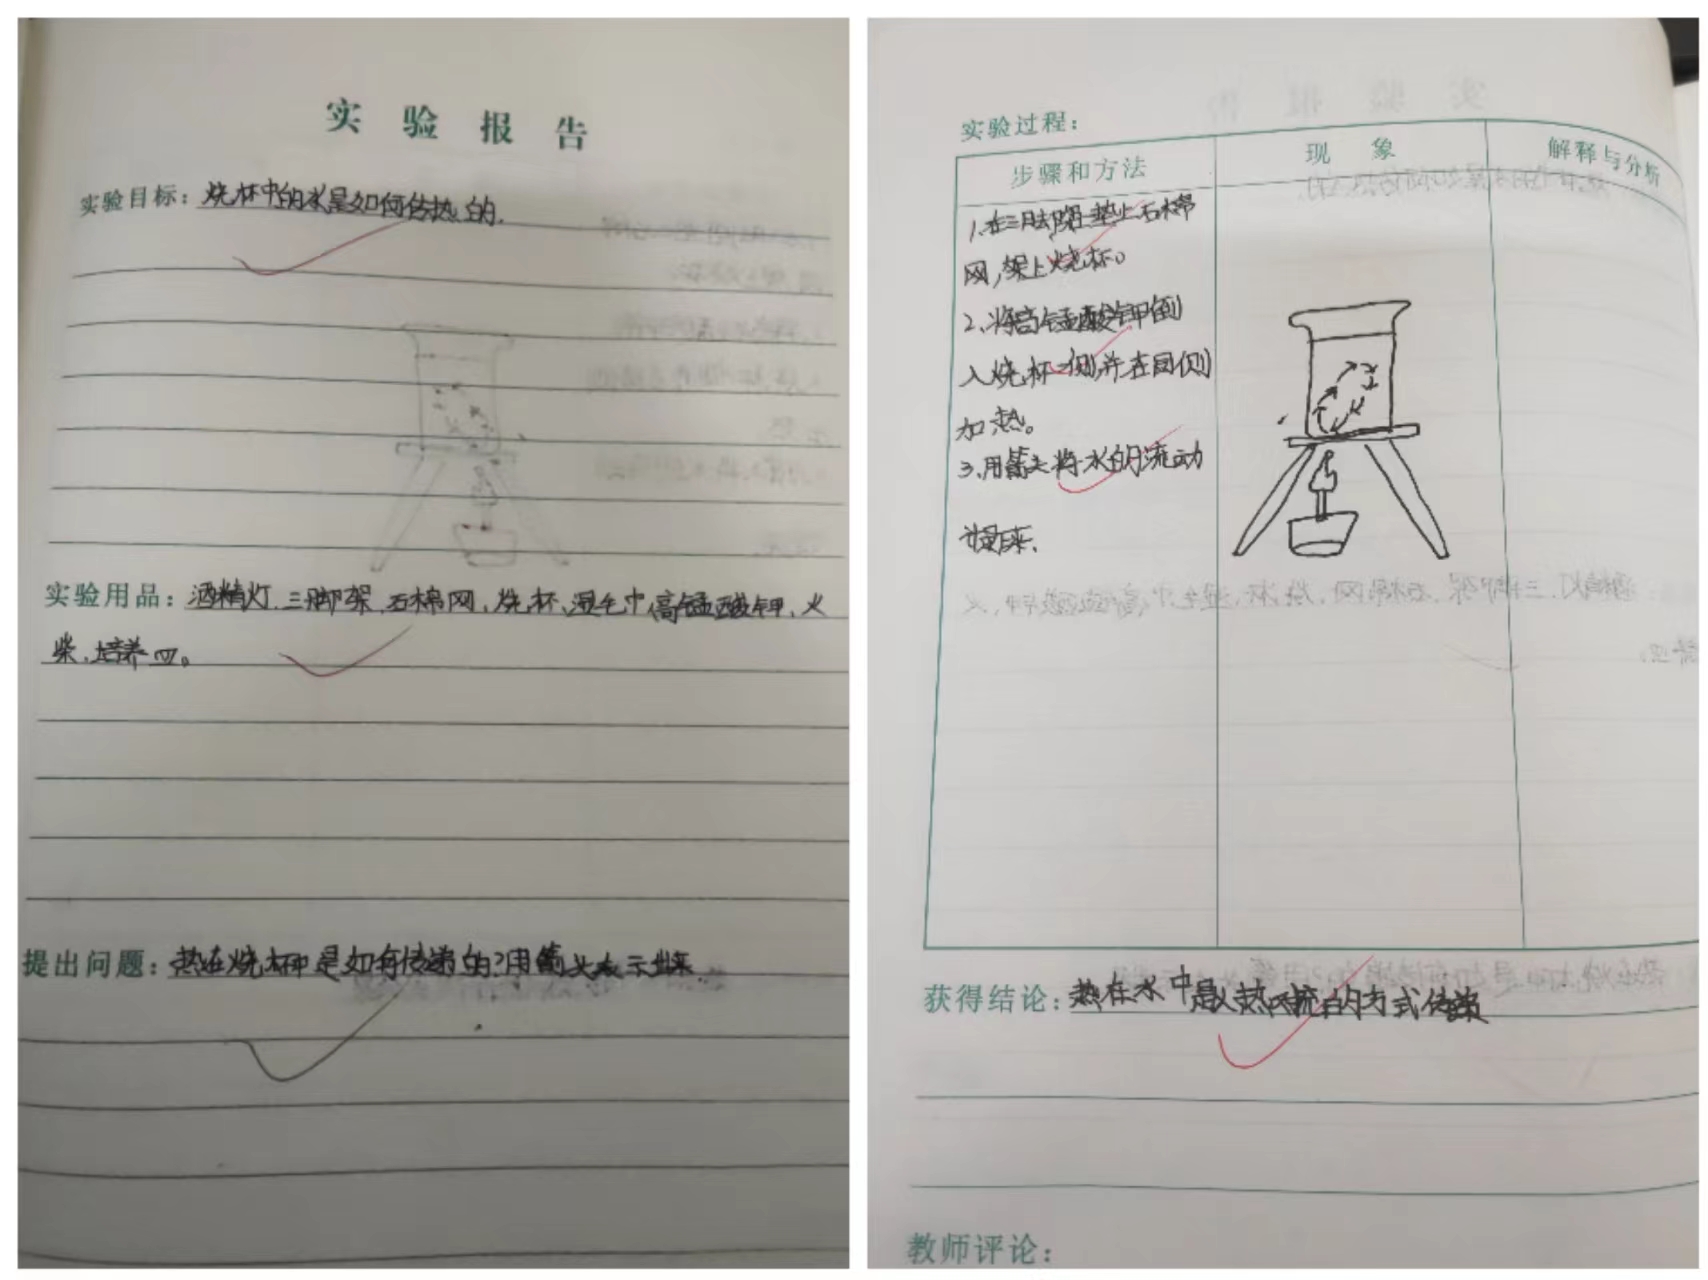 实 验 报 告
实验目标：烧杯中的水是如何传热的.
实验用品：酒精灯.三脚架.石棉网、烧杯.湿毛巾.高锰酸钾、火
柴.培养皿。
提出问题：热在烧杯中是如何传递的？用箭头表示出来
实验过程：
步骤和方法
现 象
解释与分析
1、在三脚架上垫上石棉
网，架上烧杯。
2、将高锰酸钾倒
入烧杯一侧，并在同侧
加热。
3、用箭头将水的流动
来.
获得结论：热在水中是以热对流的方式传递
教师评论：